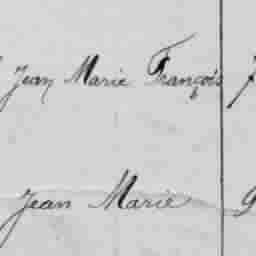 Jean Marie François
Jean Marie